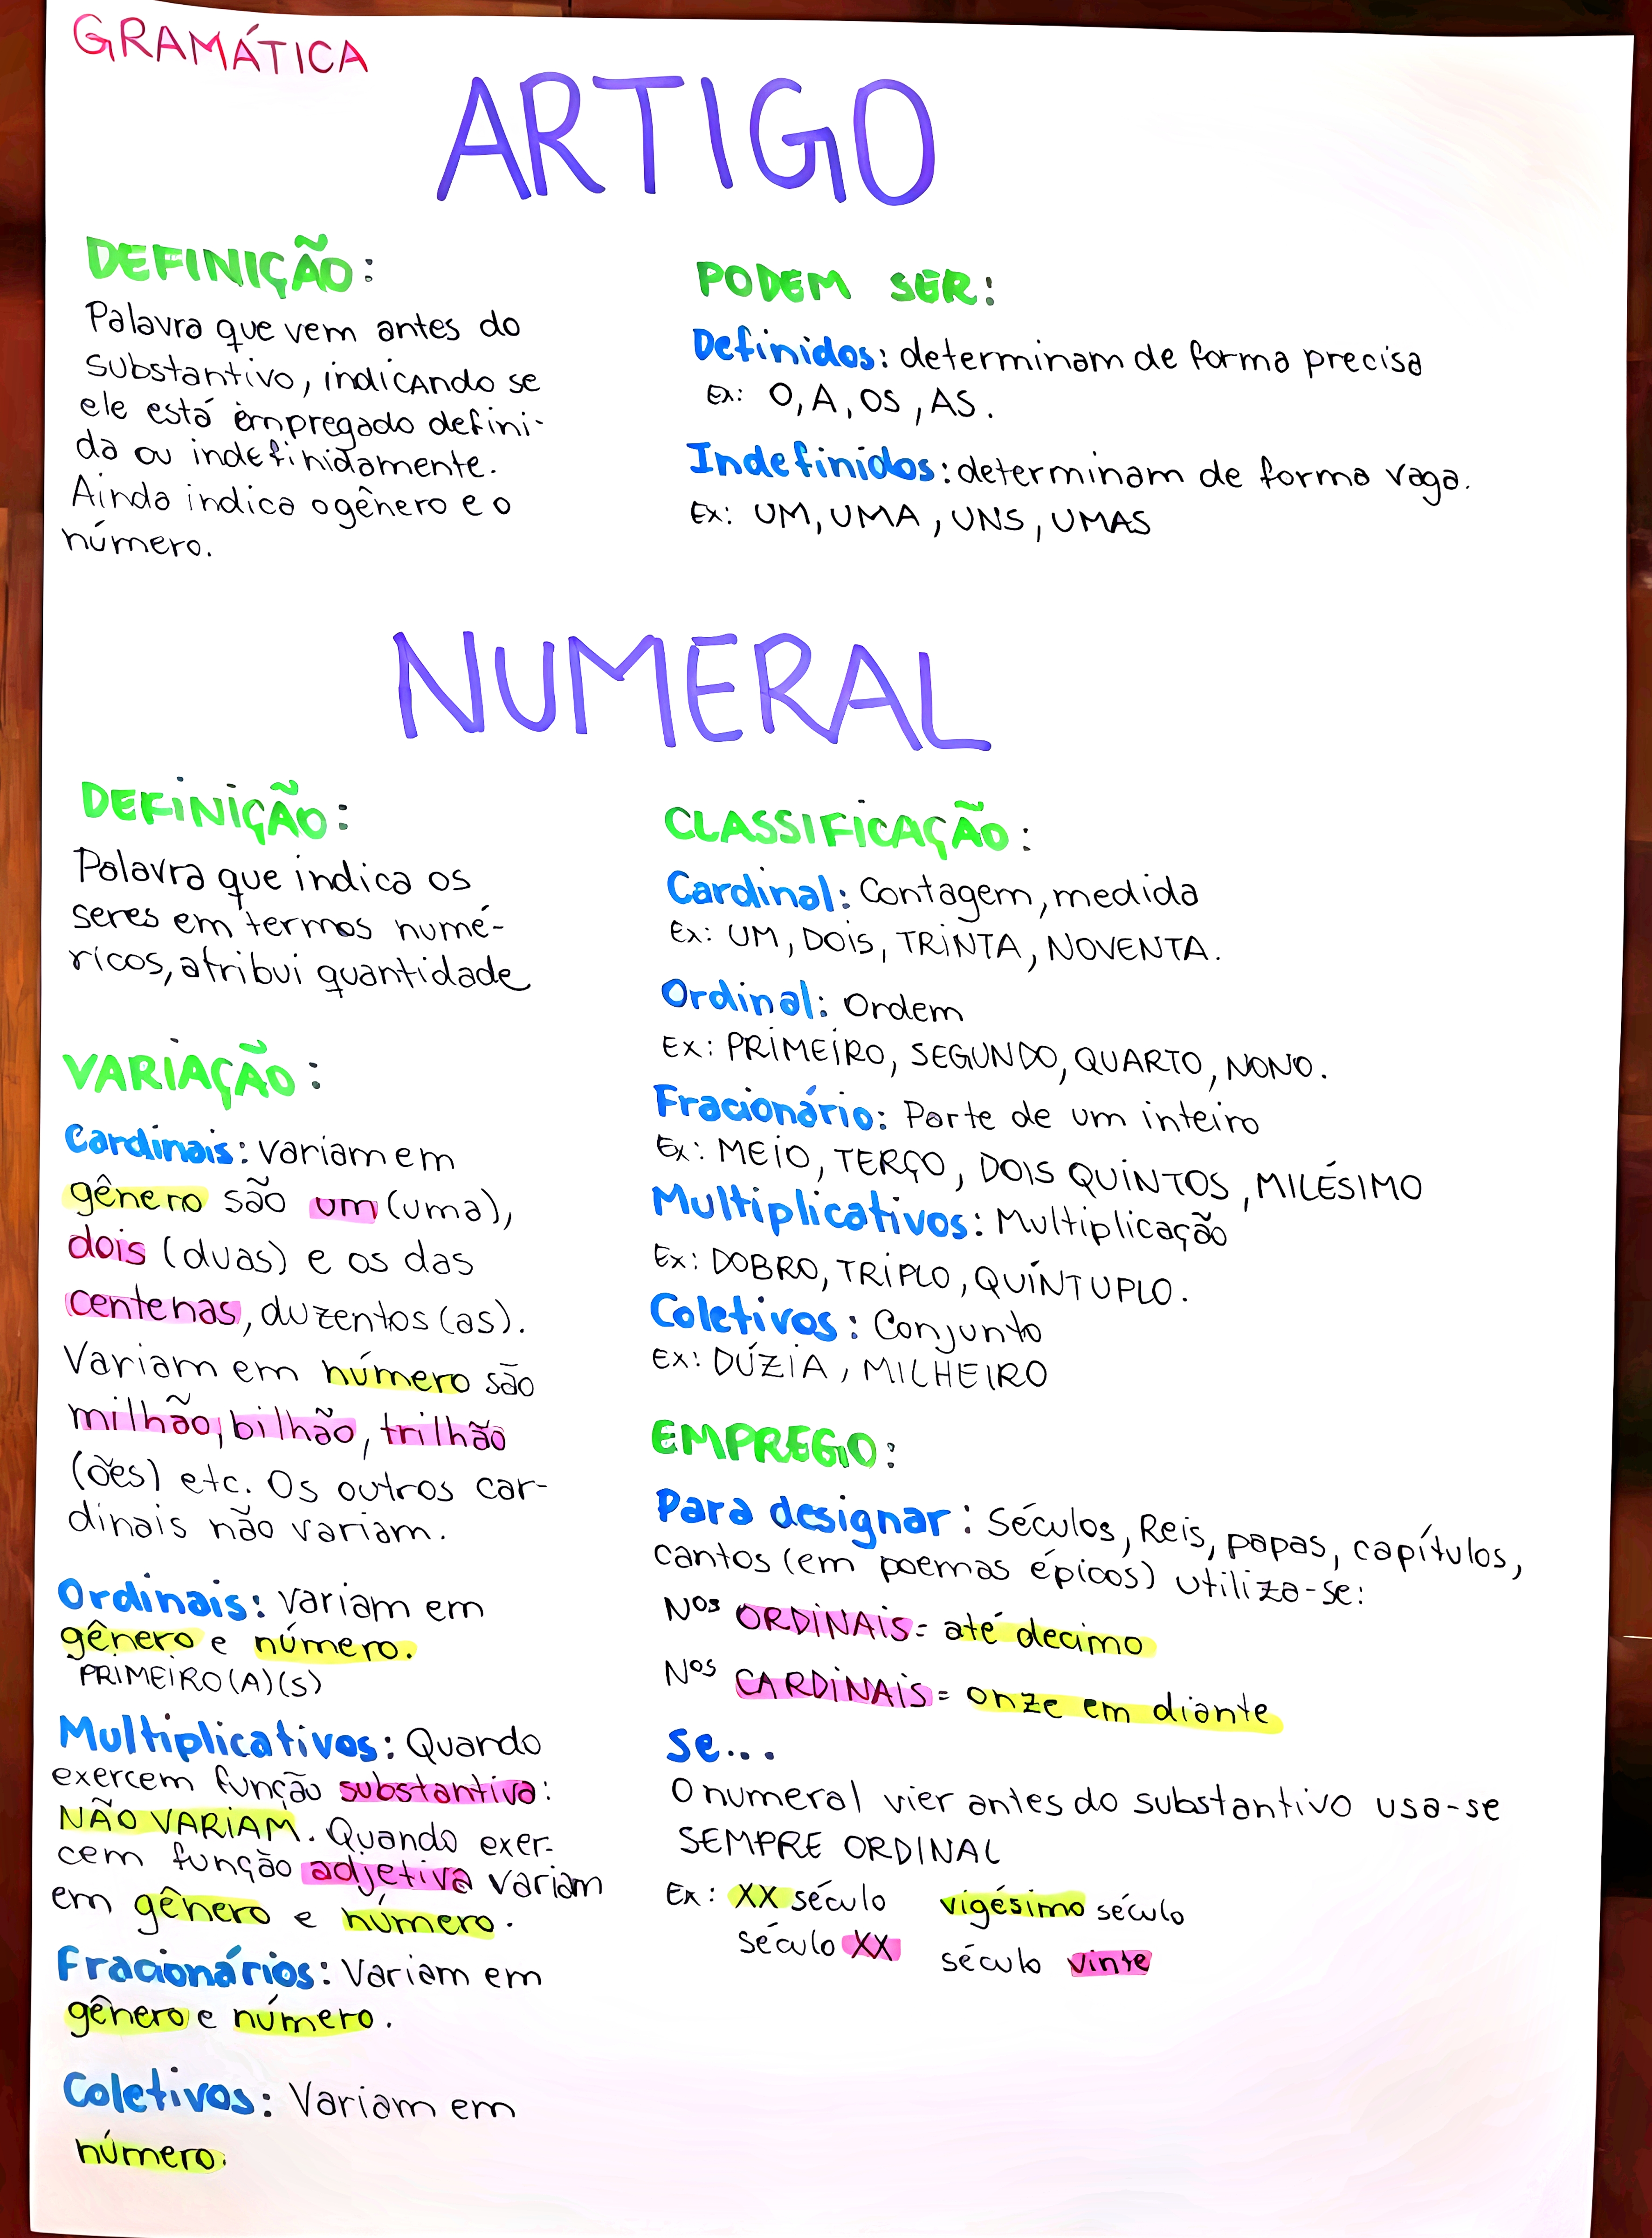 GRAMÁTICA
ARTIGO
DEFINIÇÃO:
Palavra que vem antes do
substantivo, indicando se
ele está empregado defini-
da ou indefinidamente.
Ainda indica o gênero e o
número.
PODEM SER:
Definidos: determinam de forma precisa
Ex: O, A, OS, AS.
Indefinidos: determinam de forma vaga.
Ex: UM, UMA, UNS, UMAS
NUMERAL
DEFINIÇÃO:
Palavra que indica os
seres em termos numé-
ricos, atribui quantidade
VARIAÇÃO:
Cardinais: variam em
gênero são um (uma),
dois (duas) e os das
centenas, duzentos (as).
Variam em número são
milhão, bilhão, trilhão
(ões) etc. Os outros car-
dinais não variam.
Ordinais: variam em
gênero e número.
PRIMEIRO(A)(S)
Multiplicativos: Quando
exercem função substantiva:
NÃO VARIAM. Quando exer-
cem função adjetiva variam
em gênero e número.
Fracionários: Variam em
gênero e número.
Coletivos: Variam em
número.
CLASSIFICAÇÃO:
Cardinal: Contagem, medida
Ex: UM, DOIS, TRINTA, NOVENTA.
Ordinal: Ordem
Ex: PRIMEIRO, SEGUNDO, QUARTO, NONO.
Fracionário: Parte de um inteiro
Ex: MEIO, TERÇO, DOIS QUINTOS, MILÉSIMO
Multiplicativos: Multiplicação
Ex: DOBRO, TRIPLO, QUÍNTUPLO.
Coletivos: Conjunto
Ex: DÚZIA, MILHEIRO
EMPREGO:
Para designar: Séculos, Reis, papas, capítulos,
cantos (em poemas épicos) utiliza-se:
Nos ORDINAIS = até decimo
Nos CARDINAIS = onze em diante
Se...
O numeral vier antes do substantivo usa-se
SEMPRE ORDINAL
Ex: XX século vigésimo século
século XX século vinte